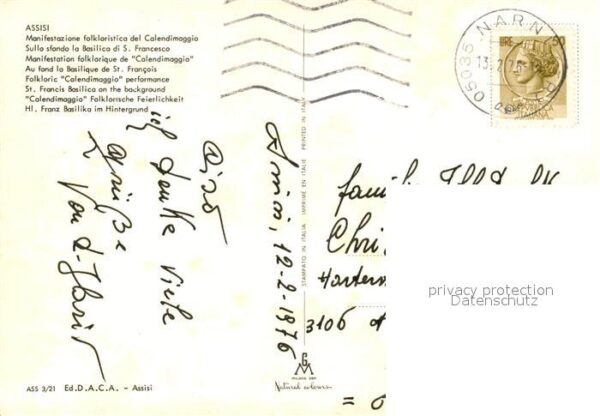 ASSISI
Manifestazione folkloristica del Calendimaggio
Sullo sfondo la Basilica di S. Francesco
Manifestation folklorique de "Calendimaggio"
Au fond la Basilique de St. François
Folkloric "Calendimaggio" performance
St. Francis Basilica on the background
"Calendimaggio" Folklorische Feierlichkeit
Hl. Franz Basilika im Hintergrund
ich danke viele
grüße
von
12-2-1976
STAMPATO IN ITALIA IMPRIMÉ EN ITALIE PRINTED IN ITALY
05035 NARNI
LIRE 50
famil
Chri
3106
privacy protection
Datenschutz
Natural colours
ASS 3/21 Ed.D.A.C.A. - Assisi